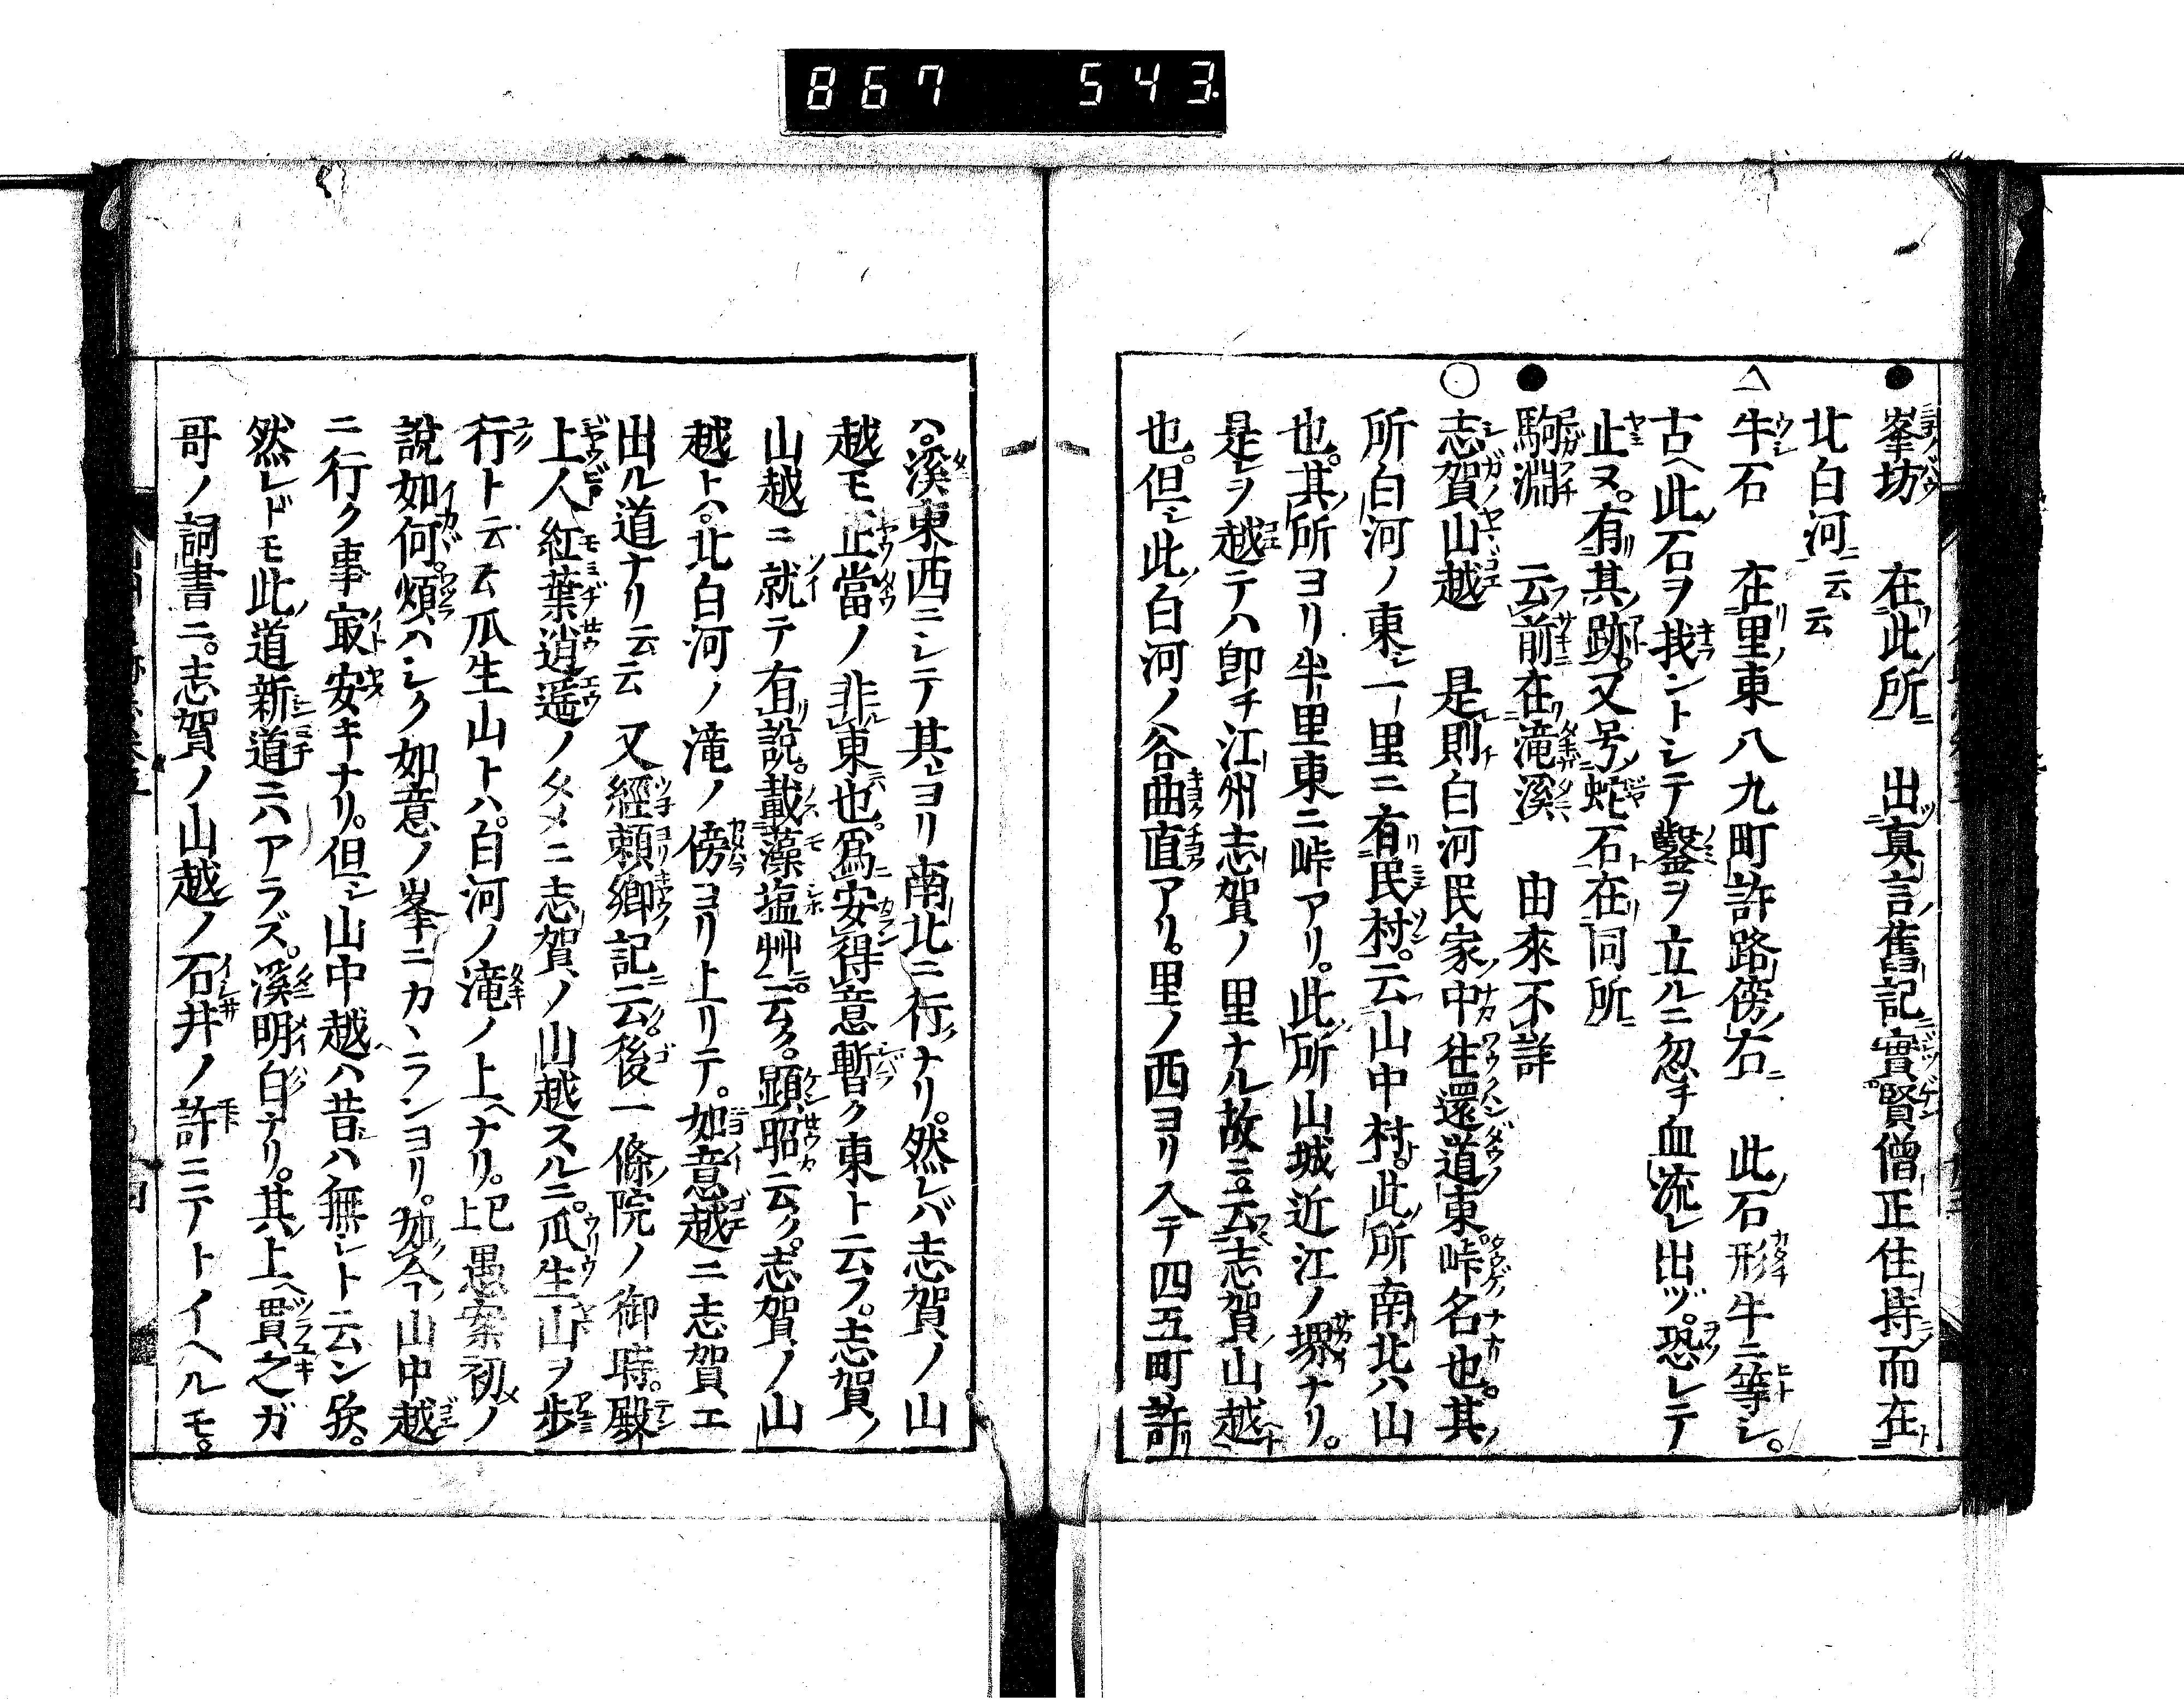 867 543
●峯坊 在此所 出真言舊記實賢僧正住持而在
北白河ニ云云
△牛石 在里東八九町許路傍右ニ 此石形牛ニ等シ。
古ヘ此石ヲ我ントシテ鑿ヲ立ルニ忽チ血流レ出ヅ。恐レテ
止ヌ。有其跡。又号蛇石在同所ニ
●駒淵 云前在滝溪 由來不詳
○志賀山越 是則白河民家中往還道東峠名也。其
所白河ノ東一里ニ有民村。云山中村。此所南北ハ山
也。其所ヨリ半里東ニ峠アリ。此所山城近江ノ堺ナリ。
是ヲ越テハ即チ江州志賀ノ里ナル故ニ。云志賀山越
也。但シ此白河ノ谷曲直アリ。里ノ西ヨリ入テ四五町許
ハ。溪東西ニシテ其ヨリ南北ニ行ナリ。然レバ志賀ノ山
越モ、正當ノ非東也。爲安得意暫ク東ト云フ。志賀ノ
山越ニ就テ有説。載藻塩艸ニ。云ク。顕昭云ク。志賀ノ山
越トハ。北白河ノ滝ノ傍ヨリ上リテ。如意越ニ志賀エ
出ル道ナリ云云 又經頼卿記ニ云ク。後一條院ノ御時。殿
上人紅葉逍遥ノタメニ志賀ノ山越スルニ。瓜生山ヲ歩
行ト云云瓜生山トハ。白河ノ滝ノ上ヘナリ。已上愚案初メノ
説如何。煩ハシク如意ノ峯ニカヽランヨリ。如今山中越
ニ行ク事㝡安キナリ。但シ山中越ハ昔ハ無シト云ン歟。
然レドモ此道新道ニハアラズ。溪明白ナリ。其上ヘ貫之ガ
哥ノ詞書ニ。志賀ノ山越ノ石井ノ許ニテトイヘルモ。